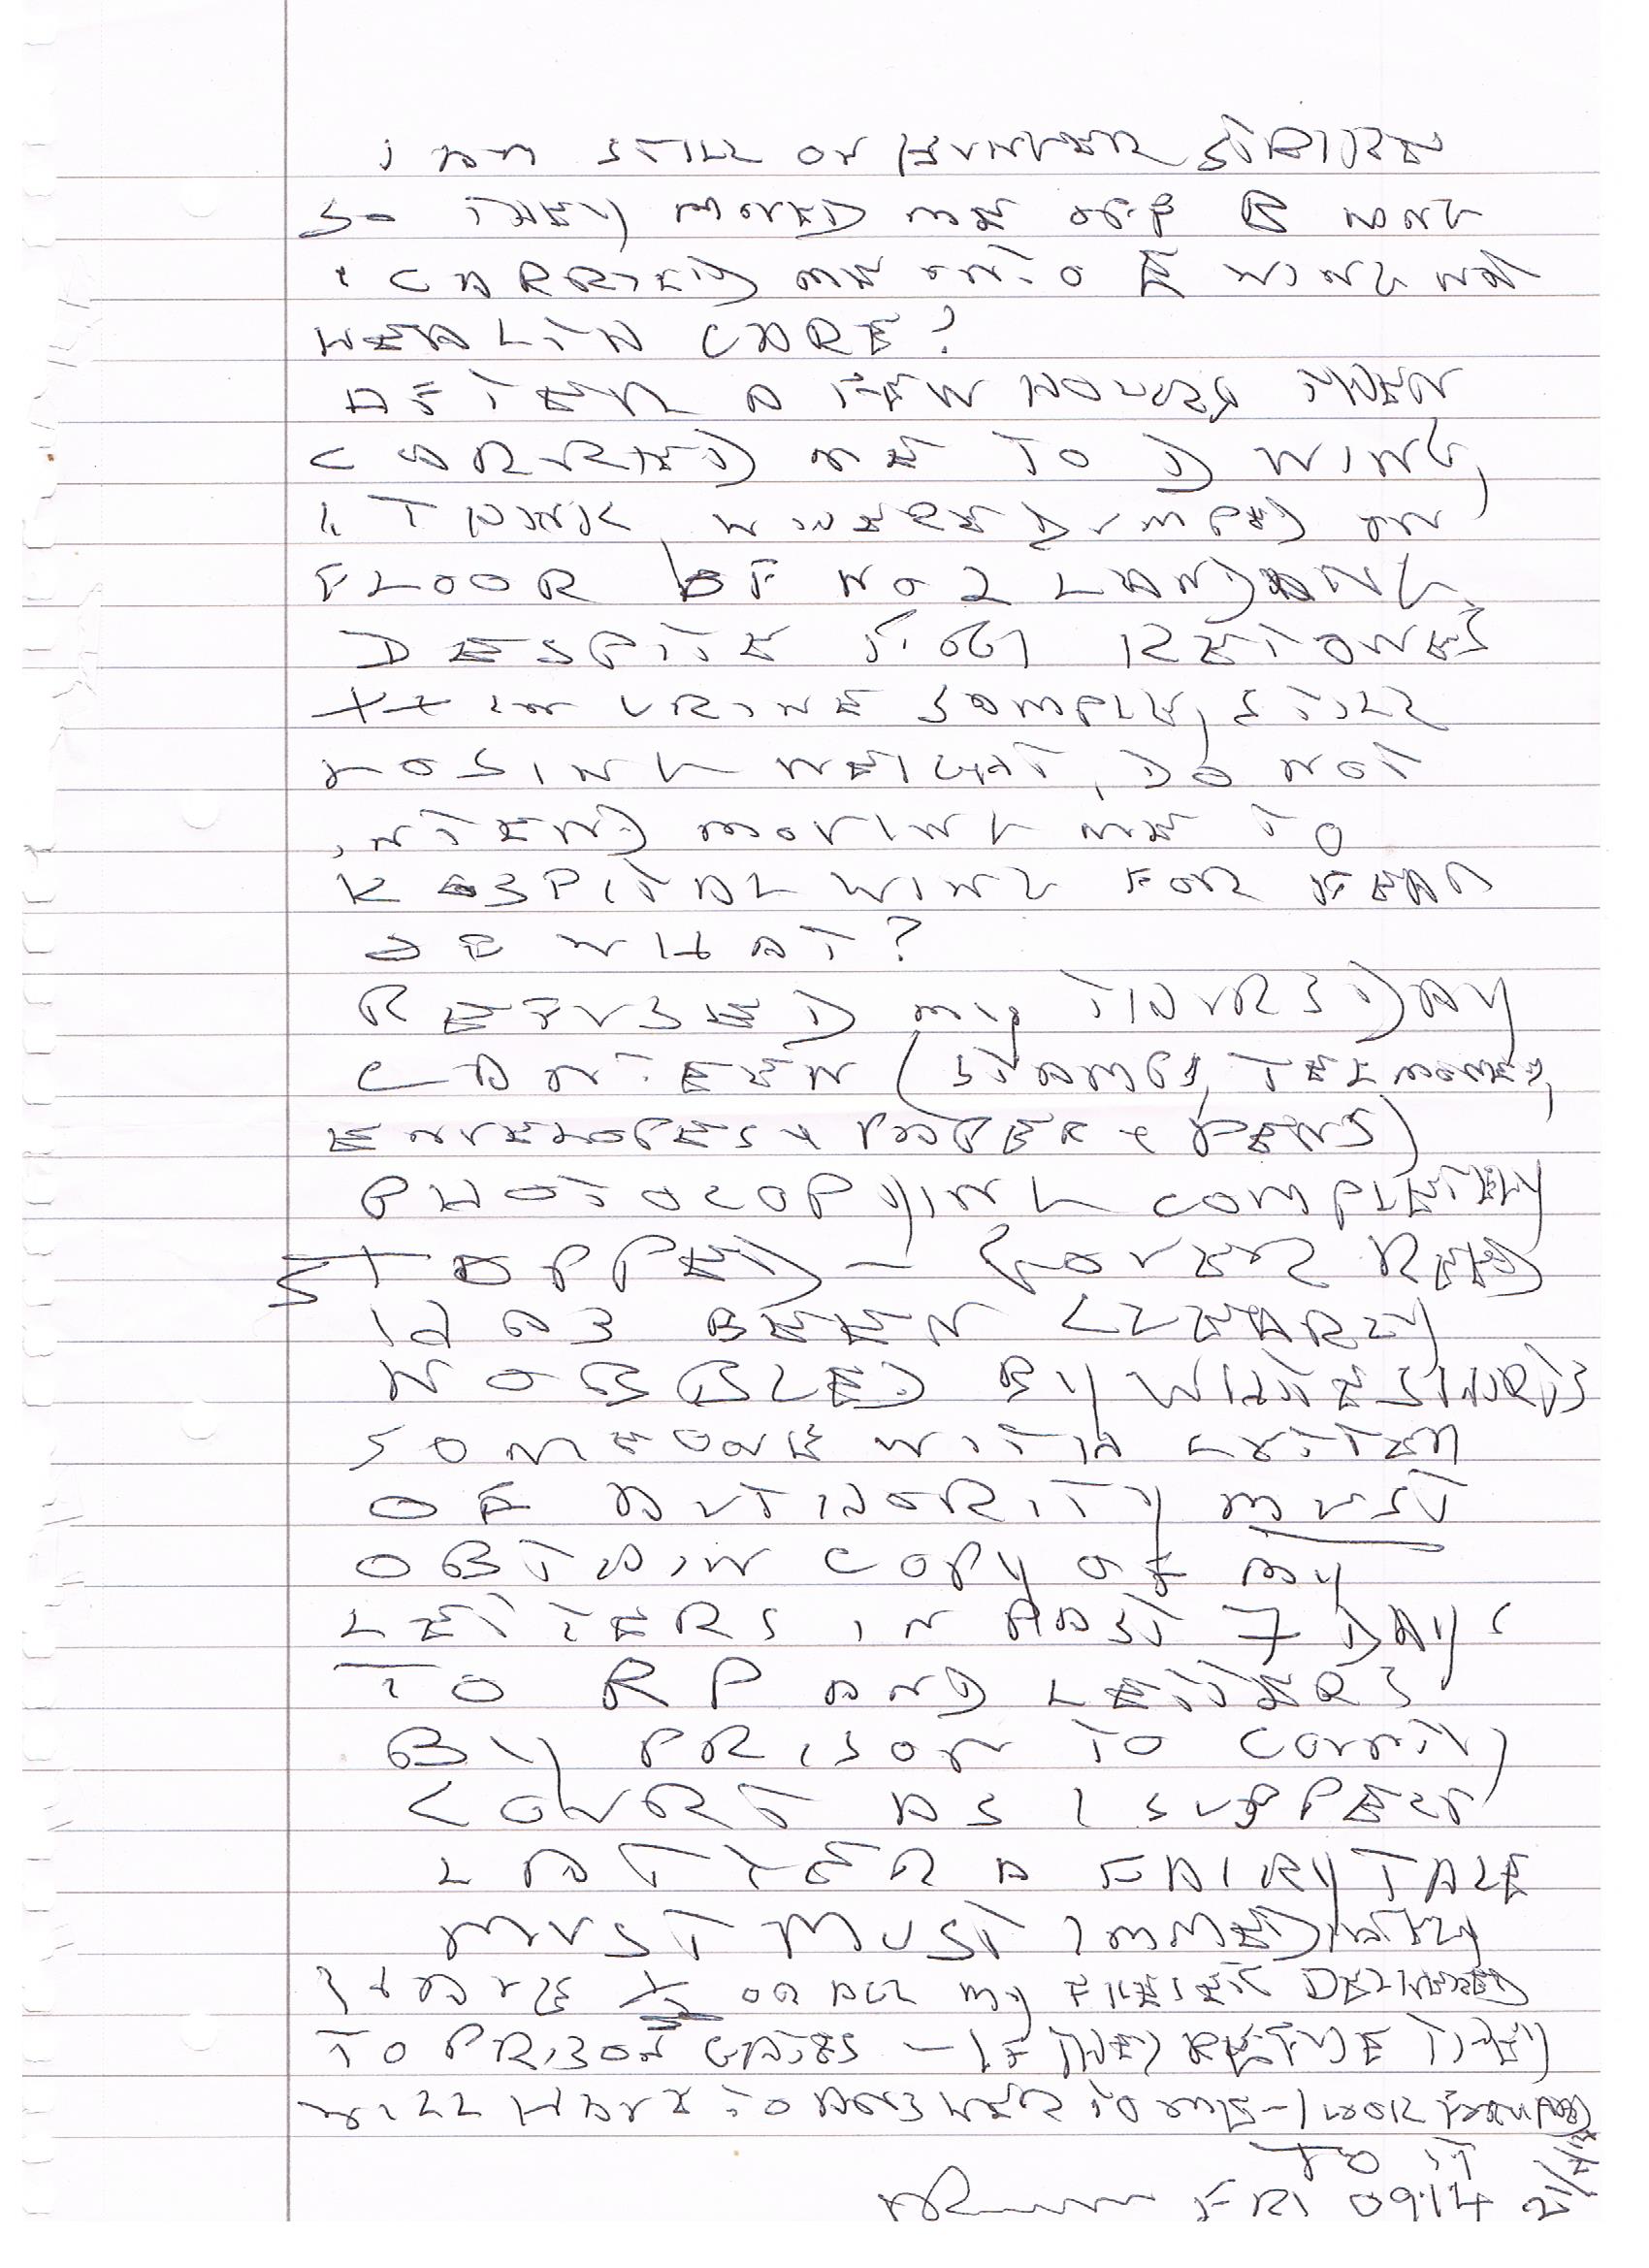 I AM STILL ON HUNGER STRIKE
SO THEY MOVED ME OFF B WING
& CARRIED ME ONTO E WING NOT
HEALTH CARE?
AFTER A FEW HOURS THEN
CARRIED ME TO D WING,
I THINK WHERE DUMPED ON
FLOOR OF NO 2 LANDING
DESPITE KETONES
++ IN URINE SAMPLE, STILL
LOSING WEIGHT, DO NOT
INTEND MOVING ME TO
HOSPITAL WING FOR FEAR
OF WHAT?
REFUSED MY THURSDAY
CANTEEN (STAMPS, TEL MONEY,
ENVELOPES + PAPER + PENS)
PHOTOCOPYING COMPLETELY
STOPPED — GOVERNOR REED
HAS BEEN CLEARLY
NOBBLED BY WHITE SHIRTS
SOMEONE WITH LETTER
OF AUTHORITY MUST
OBTAIN COPY OF MY
LETTERS IN PAST 7 DAYS
TO RP AND LETTERS
BY PRISON TO COUNTY
COURT AS I SUSPECT
LATTER A FAIRY TALE
MUST MUST IMMEDIATELY
HAVE ½ OR ALL MY FILES DELIVERED
TO PRISON GATES — IF THEY REFUSE THEY
WILL HAVE TO ANSWER TO ME — I LOOK FORWARD
TO IT
FRI 0914